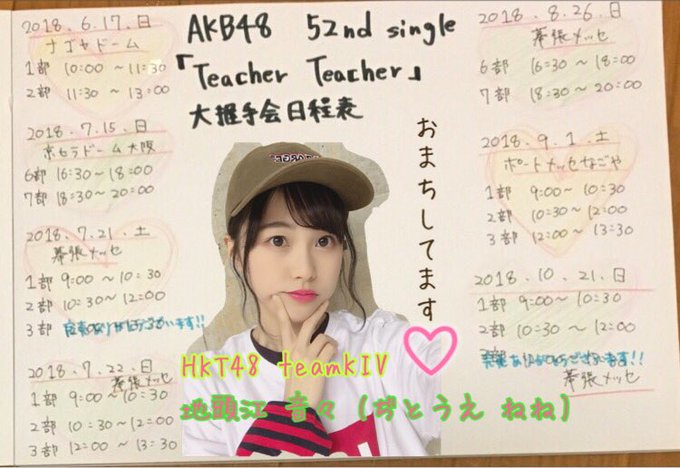 2018.6.17.日
ナゴヤドーム
1部 10:00 ~ 11:30
2部 11:30 ~ 13:00
2018.7.15.日
京セラドーム大阪
6部 16:30 ~ 18:00
7部 18:30 ~ 20:00
2018.7.21.土
幕張メッセ
1部 9:00 ~ 10:30
2部 10:30 ~ 12:00
3部 完売ありがとうございます!!
2018.7.22.日
幕張メッセ
1部 9:00 ~ 10:30
2部 10:30 ~ 12:00
3部 12:00 ~ 13:30
AKB48 52nd single
「Teacher Teacher」
大握手会日程表
おまちしてます
HKT48 teamKIV
地頭江 音々 (ぢとうえ ねね)
2018.8.26.日
幕張メッセ
6部 16:30 ~ 18:00
7部 18:30 ~ 20:00
2018.9.1.土
ポートメッセなごや
1部 9:00 ~ 10:30
2部 10:30 ~ 12:00
3部 12:00 ~ 13:30
2018.10.21.日
1部 9:00 ~ 10:30
2部 10:30 ~ 12:00
完売ありがとうございます!!
幕張メッセ